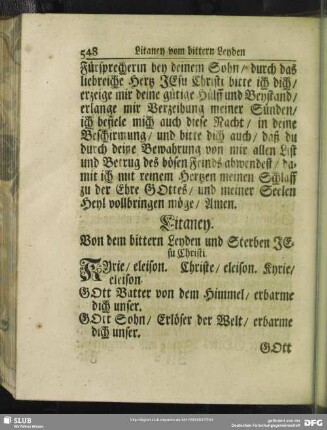 548 Litaney vom bittern Leyden
Fürsprecherin bey deinem Sohn / durch das
liebreiche Hertz JEsu Christi bitte ich dich /
erzeige mir deine gütige Hülff und Beystand /
erlange mir Verzeihung meiner Sünden /
ich befiele mich auch diese Nacht / in deine
Beschirmung / und bitte dich auch / daß du
durch deine Bewahrung von mir allen List
und Betrug des bösen Feinds abwendest / da-
mit ich mit reinem Hertzen meinen Schlaff
zu der Ehre GOttes / und meiner Seelen
Heyl vollbringen möge / Amen.
Litaney.
Von dem bittern Leyden und Sterben JE-
su Christi.
KYrie / eleison. Christe / eleison. Kyrie /
eleison.
GOtt Vatter von dem Himmel / erbarme
dich unser.
GOtt Sohn / Erlöser der Welt / erbarme
dich unser.
GOtt
SLUB
Wir führen Wissen.
gefördert von der
Deutschen Forschungsgemeinschaft
DFG